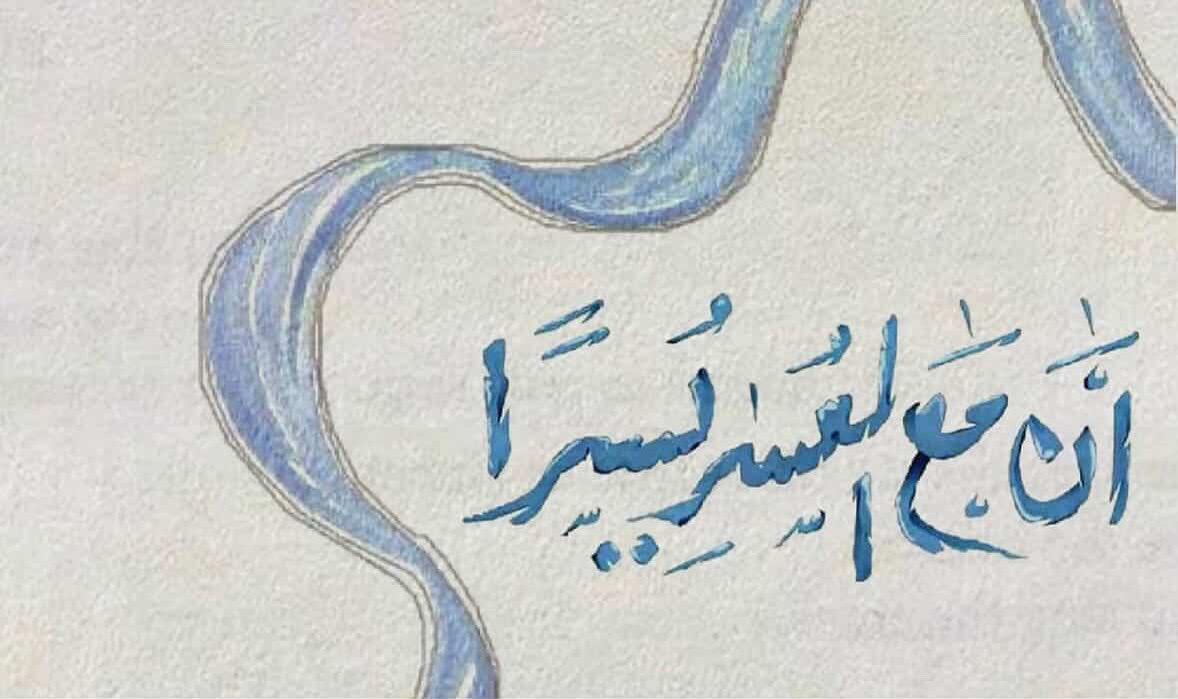 انَّ مَعَ الْعُسْرِ يُسْرًا